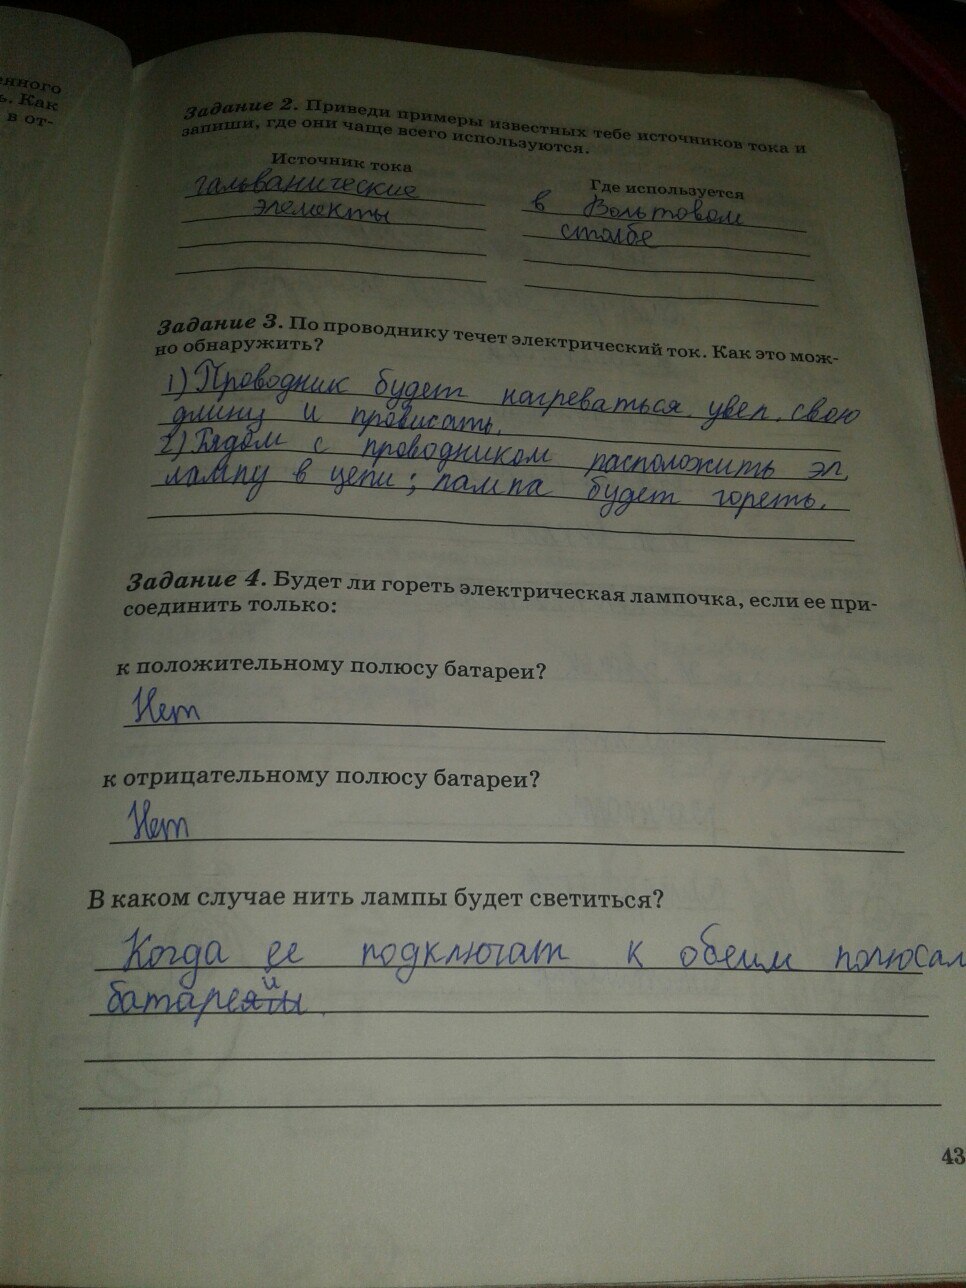 енного
ь. Как
в от-
Задание 2. Приведи примеры известных тебе источников тока и
запиши, где они чаще всего используются.
Источник тока
Где используется
гальванические
элементы
в Вольтовом
столбе
Задание 3. По проводнику течет электрический ток. Как это мож-
но обнаружить?
1) Проводник будет нагреваться. увел. свою
длину и провисать.
2) Рядом с проводником расположить эл.
лампу в цепи; лампа будет гореть.
Задание 4. Будет ли гореть электрическая лампочка, если ее при-
соединить только:
к положительному полюсу батареи?
Нет
к отрицательному полюсу батареи?
Нет
В каком случае нить лампы будет светиться?
Когда ее подключат к обеим полюсам
батареи.
43